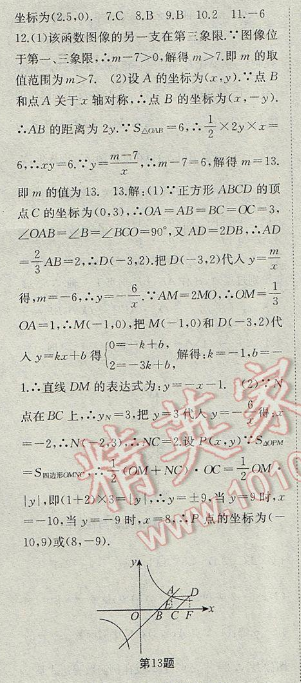 坐标为(2.5,0).  7.C  8.B  9.B  10.2  11.-6
12.(1)该函数图像的另一支在第三象限.∵图像位
于第一、三象限,∴m-7>0,解得m>7.即m的取
值范围为m>7.  (2)设A的坐标为(x,y).∵点B
和点A关于x轴对称,∴点B的坐标为(x,-y).
∴AB的距离为2y.∵S△OAB=6,∴1/2×2y×x=
6,∴xy=6.∵y=(m-7)/x,∴m-7=6,解得m=13.
即m的值为13.  13.解:(1)∵正方形ABCD的顶
点C的坐标为(0,3),∴OA=AB=BC=OC=3,
∠OAB=∠B=∠BCO=90°,又AD=2DB,∴AD
=2/3AB=2,∴D(-3,2).把D(-3,2)代入y=m/x
得,m=-6,∴y=-6/x.∵AM=2MO,∴OM=1/3
OA=1,∴M(-1,0),把M(-1,0)和D(-3,2)代
入y=kx+b得{0=-k+b, 2=-3k+b, 解得:k=-1,b=-
1.∴直线DM的表达式为:y=-x-1.  (2)∵N
点在BC上,∴yN=3,把y=3代入y=-6/x得:x
=-2,∴N(-2,3),∴NC=2.设P(x,y)∵S△OPM
=S四边形OMNC,∴1/2(OM+NC)·OC=1/2OM·
|y|,即(1+2)×3=|y|,∴y=±9,当y=9时,x
=-10,当y=-9时,x=8,∴P点的坐标为(-
10,9)或(8,-9).
y
A
D
E
O
B
C
F
x
第13题
精英家
www.1010jiajiao.com